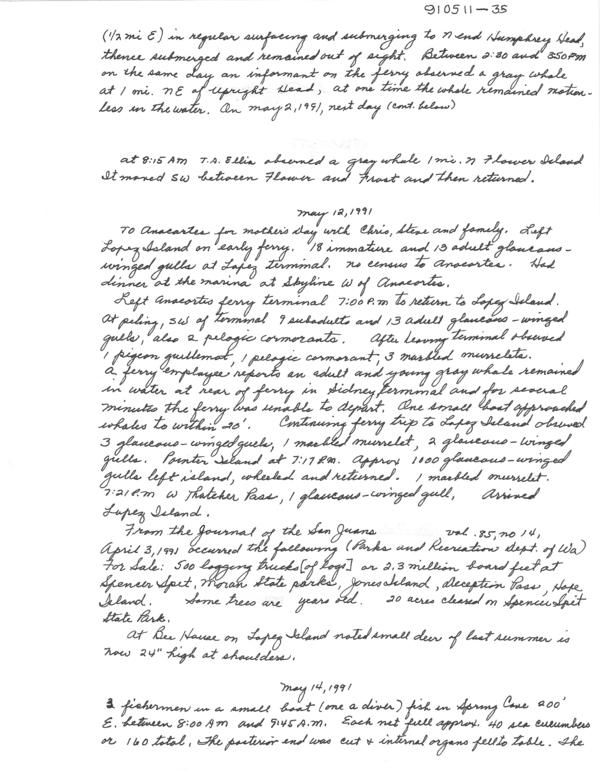 910511-35
(1/2 mi E) in regular surfacing and submerging to N end Humphrey Head,
thence submerged and remained out of sight. Between 2:30 and 3:50 PM
on the same day an informant on the ferry observed a gray whale
at 1 mi. NE of Upright Head, at one time the whale remained motion-
less in the water. On May 2, 1991, next day (cont. below)
at 8:15 AM T.A. Ellis observed a gray whale 1 mi. N Flower Island
It moved SW between Flower and Frost and then returned.
May 12, 1991
To Anacortes for mother's day with Chris, Steve and family. Left
Lopez Island on early ferry. 18 immature and 13 adult glaucous-
winged gulls at Lopez terminal. No census to Anacortes. Had
dinner at the marina at Skyline W of Anacortes.
Left Anacortes ferry terminal 7:00 P.m to return to Lopez Island.
At piling, SW of terminal 9 subadults and 13 adult glaucous-winged
gulls, also 2 pelagic cormorants. After leaving terminal observed
1 pigeon guillemot, 1 pelagic cormorant, 3 marbled murrelets.
A ferry employee reports an adult and young gray whale remained
in water at rear of ferry in Sidney terminal and for several
minutes the ferry was unable to depart. One small boat approached
whales to within 20'. Continuing ferry trip to Lopez Island observed
3 glaucous-winged gulls, 1 marbled murrelet, 2 glaucous-winged
gulls. Pointer Island at 7:17 P.m. Approx 1000 glaucous-winged
gulls left island, wheeled and returned. 1 marbled murrelet.
7:21 P.m W Thatcher Pass, 1 glaucous-winged gull. Arrived
Lopez Island.
From the Journal of the San Juans vol. 85, no 14,
April 3, 1991 occurred the following (Parks and Recreation Dept. of Wa)
For Sale: 500 logging trucks [of logs] or 2.3 million board feet at
Spencer Spit, Moran State parks, Jones Island, Deception Pass, Hope
Island. Some trees are years old. 20 acres cleared on Spencer Spit
State Park.
At Bee House on Lopez Island noted small deer of last summer is
now 24" high at shoulders.
May 14, 1991
3 fishermen in a small boat (one a diver) fish in Spring Cove 200'
E. between 8:00 AM and 9:45 A.M. Each net full approx. 40 sea cucumbers
or 160 total. The posterior end was cut + internal organs fell to table. The